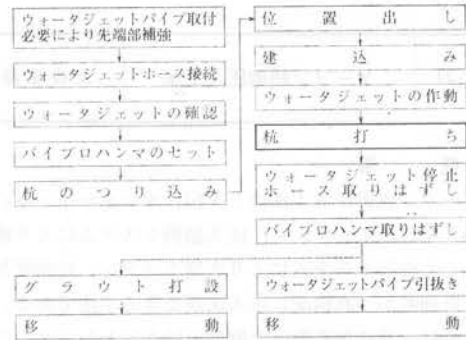 ウォータジェットパイプ取付
必要により先端部補強
ウォータジェットホース接続
ウォータジェットの確認
バイブロハンマのセット
杭のつり込み
位置出し
建込み
ウォータジェットの作動
杭打ち
ウォータジェット停止
ホース取りはずし
バイブロハンマ取りはずし
グラウト打設
移動
ウォータジェットパイプ引抜き
移動